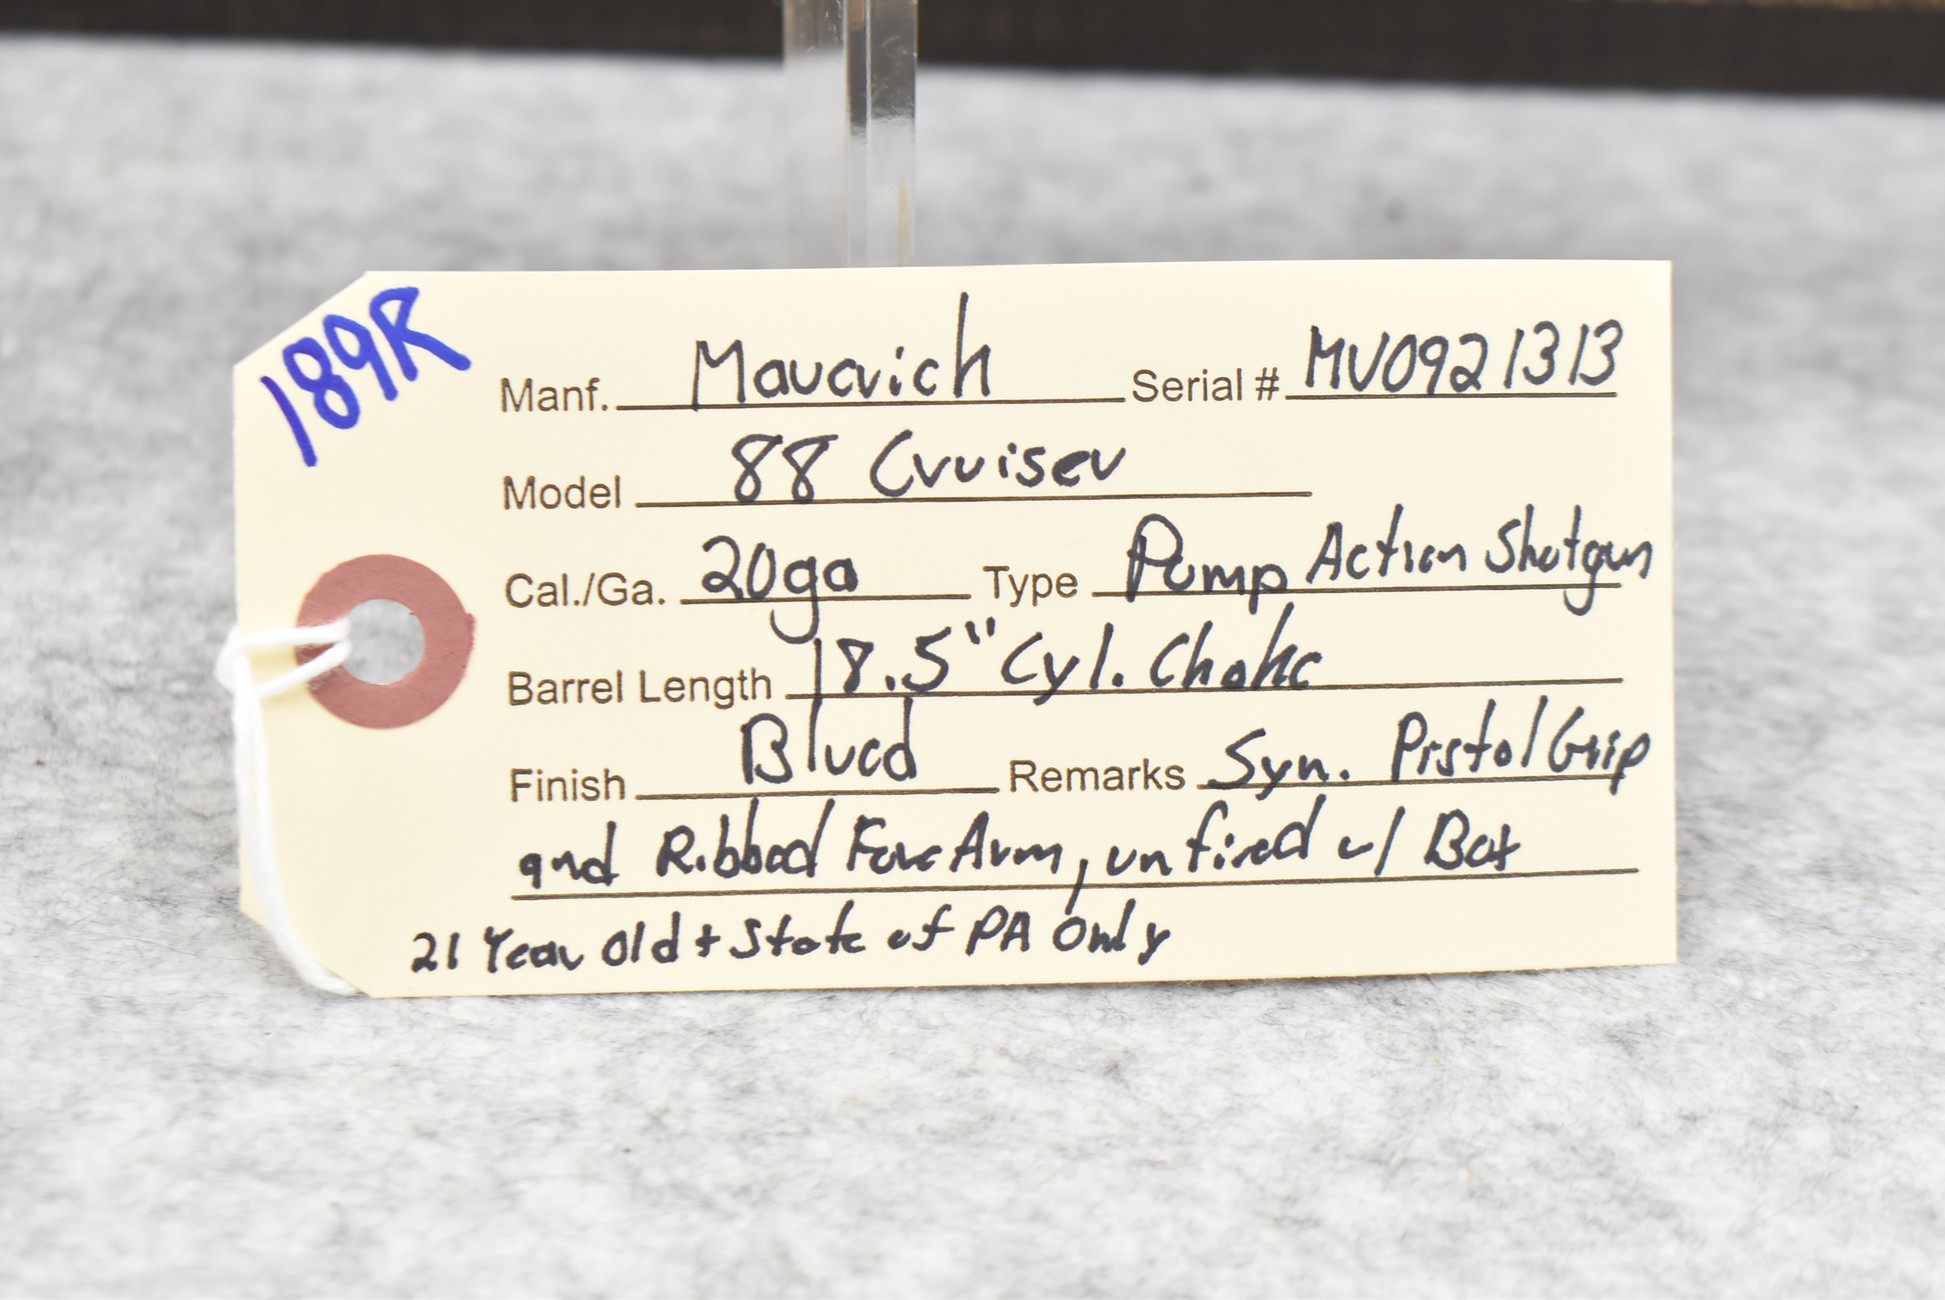 189R
Manf. Mavarich Serial # MV0921313
Model 88 Cruiser
Cal./Ga. 20ga Type Pump Action Shotgun
Barrel Length 18.5" Cyl. Choke
Finish Blued Remarks Syn. Pistol Grip
and Ribbed ForeArm, unfired w/ Box
21 Year Old + State of PA Only